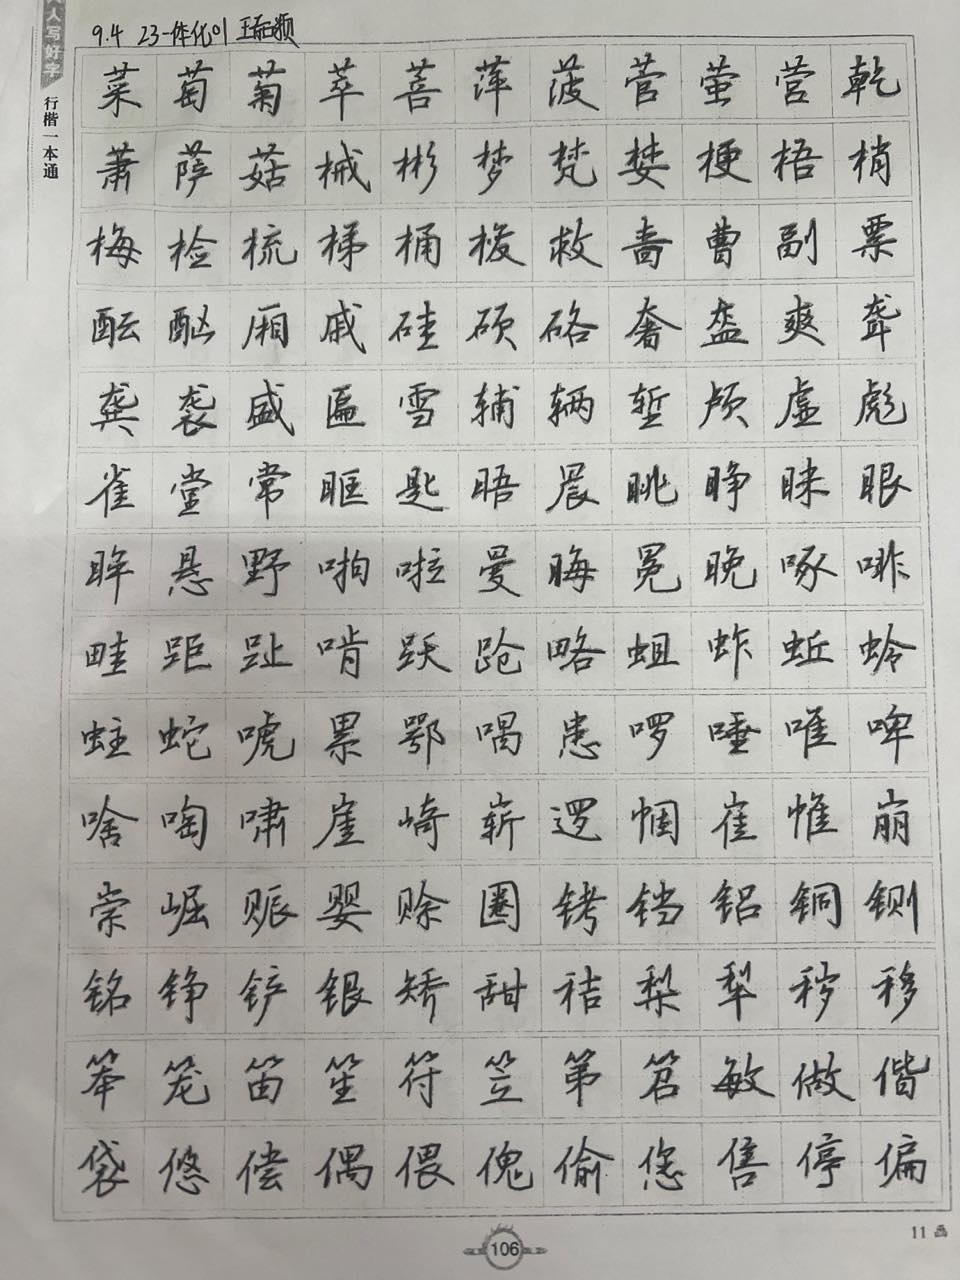 人写好字
行楷一本通
9.4 23一体化01 王
菜萄菊萃菩萍菠菅萤营乾
萧萨菇械彬梦梵婪梗梧梢
梅检梳梯桶梭救啬曹副票
酝酗厢戚硅硕硌奢盔爽聋
龚袭盛匾雪辅辆堑颅虚彪
雀堂常眶匙晤晨眺睁眯眼
眸悬野啪啦曼晦冕晚啄啡
畦距趾啃跃跄略蛆蚱蚯蛉
蛀蛇唬累鄂唱患啰唾唯啤
啥啕啸崖崎崭逻帼崔帷崩
崇崛赈婴赊圈铐铛铝铜铡
铭铮铲银矫甜秸梨犁秽移
笨笼笛笙符笠第笤敏做偕
袋悠偿偶偎傀偷您售停偏
106
11画